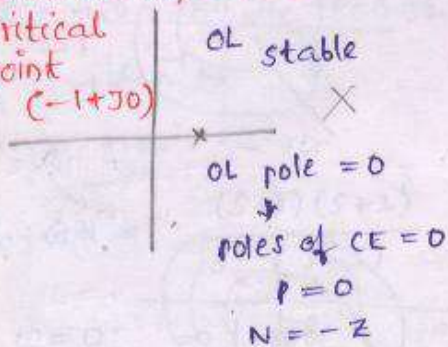 ritical
oint
(-1+J0)
OL stable
OL pole = 0
↓
poles of CE = 0
P = 0
N = - Z